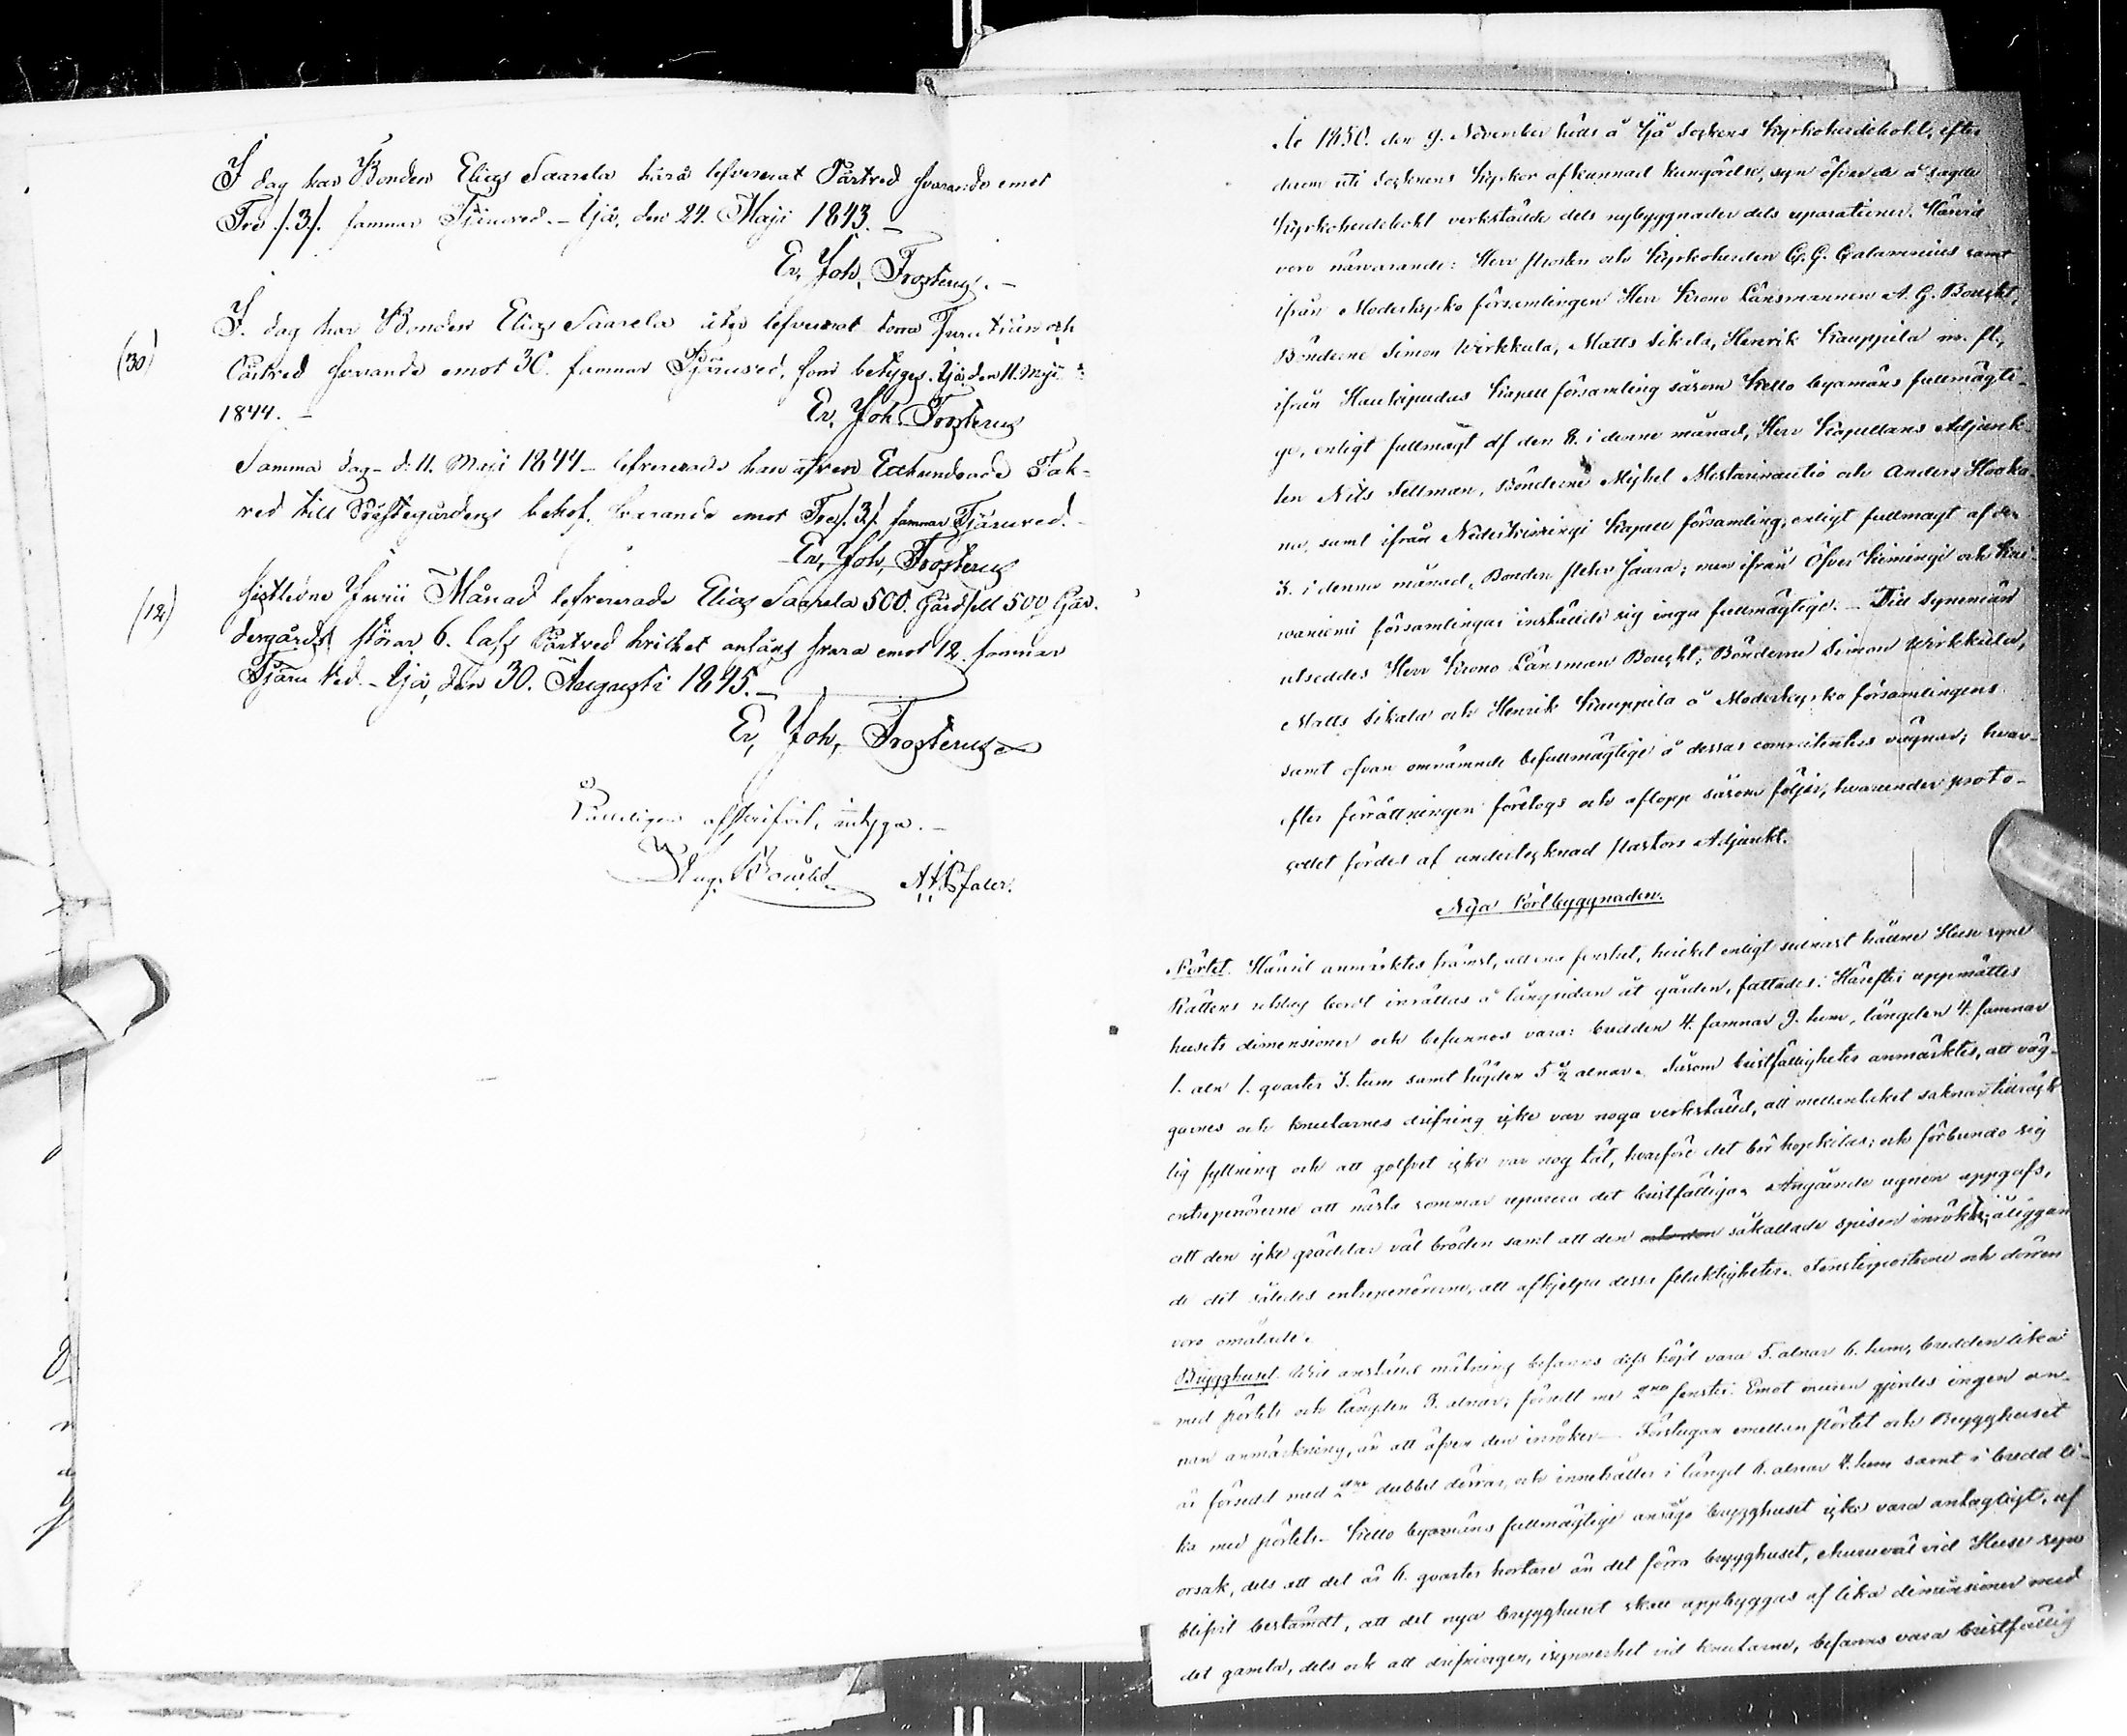 I dag har Bonden Elias Saarela härå lefvererat Pärtved svarande emot
Tre /.3./. famnar Tjäruved. - Ijå, den 24. Maji 1843. -
Er, Joh, Frosterus. -
I. dag har Bonden Elias Saarela lefvererat torra och
(30)
Pärtved svarande emot 30. famnar Tjäruved, som betyges. Ijå, den 11. Maji
1844. -
Er, Joh. Frosterus
Samma dag - d. 11. Maji 1844 - lefvererade han äfven Etthundrade Tak-
ved till Prästegårdens behof, svarande emot Tre /.3./. famnar Tjäruved. -
Er, Joh, Frosterus
(12)
sistledne Junii Månad lefvererade Elias Saarela 500. Gärdsell 500 Gär-
desgårds störar 6. lass Pärtved hvilket anlags svara emot 12. famnar
Tjäru Ved. - Ijå, den 30. Augusti 1845. -
Er, Joh, Frosterus
Riktigen afskrifvit, intyga. -
Aug. Boucht
År 1850. den 9. November hölls å Ijå Sockens Kyrkoherdebohl, efter
derom uti Socknens Kyrkor afkunnad kungörelse, syn öfver de å sagde
Kyrkoherdebohl verkstälde dels nybyggnader dels reparationer. Härvid
voro närvarande: Herr Prosten och Kyrkoherden G. G. Calamnius samt
ifrån Moderkyrko församlingen Herr Krono Länsmannen A. G. Boucht,
Bönderne Simon Wirkkula, Matts Sikala, Henrik Kauppila m. fl.,
ifrån Haukipudas Kapell församling såsom Kello byamäns fullmägti-
ge, enligt fullmagt af den 8. i denne månad, Herr Kapellans Adjunk-
ten Nils Fellman, Bönderne Michel Mestarinautio och Anders Hooka-
na, samt ifrån Nederkiimingi Kapell församling, enligt fullmagt af den
3. i denna månad, Bonden Petter Jaara; men ifrån Öfver Kiimingi och Kui-
waniemi församlingar inställde sig inga fullmägtige. - Till Synemän
utseddes Herr Krono Länsman Boucht, Bönderne Simon Wirkkula,
Matts Sikala och Henrik Kauppila å Moderkyrko församlingens
samt ofvan omnämnde befullmägtige å dessas committenters vägnar; hvar-
efter förrättningen företogs och aflopp såsom följer, hvarunder proto-
collet fördes af undertecknad Pastors Adjunkt.
Nya Pörtbyggnaden.
Pörtet. Härvid anmärktes främst, att ena fenstret, hvilket enligt sednast hållne Huse syne
Rättens utslag bordt inrättas å långsidan åt gården, fattades. Härefter uppmättes
husets dimensioner och befunnos vara: bredden 4. famnar 9. tum, längden 4. famnar
1. aln 1. qvarter 3. tum samt höjden 5 ½ alnar. Såsom bristfälligheter anmärktes, att väg-
garnes och knutarnes drifning icke var noga verkställd, att mellantaket saknar tillräck-
lig fyllning och att golfvet icke var nog tät, hvarföre det bör hopkilas; och förbundo sig
entreprenörerne att nästa sommar reparera det bristfälliga. Angående ugnen uppgafs,
att den icke gräddar väl bröden samt att den såkallade spisen inrökte; åliggan-
de det således entreprenörerne, att afhjelpa dessa felaktigheter. Fensterposterne och dörren
voro omålade.
Brygghuset. Wid anställd mätning befanns dess höjd vara 5. alnar 6. tum, bredden lika
med pörtets och längden 9. alnar, försedt med 2ne fenster. Emot muren gjordes ingen an-
nan anmärkning, än att äfven den inröker. - Förstugan emellan Pörtet och Brygghuset
är försedd med 2ne dubbel dörrar, och innehåller i längd 6. alnar 4. tum samt i bredd li-
ka med pörtets. - Kello byamäns fullmägtige ansågo brygghuset icke vara antagligt, af
orsak, dels att det är 6. qvarter kortare än det förra brygghuset, ehuruväl vid Huse syn
blifvit bestämdt, att det nya brygghuset skall uppbyggas af lika dimensioner med
det gamla, dels ock att drifningen, isynnerhet vid knutarne, befanns vara bristfällig